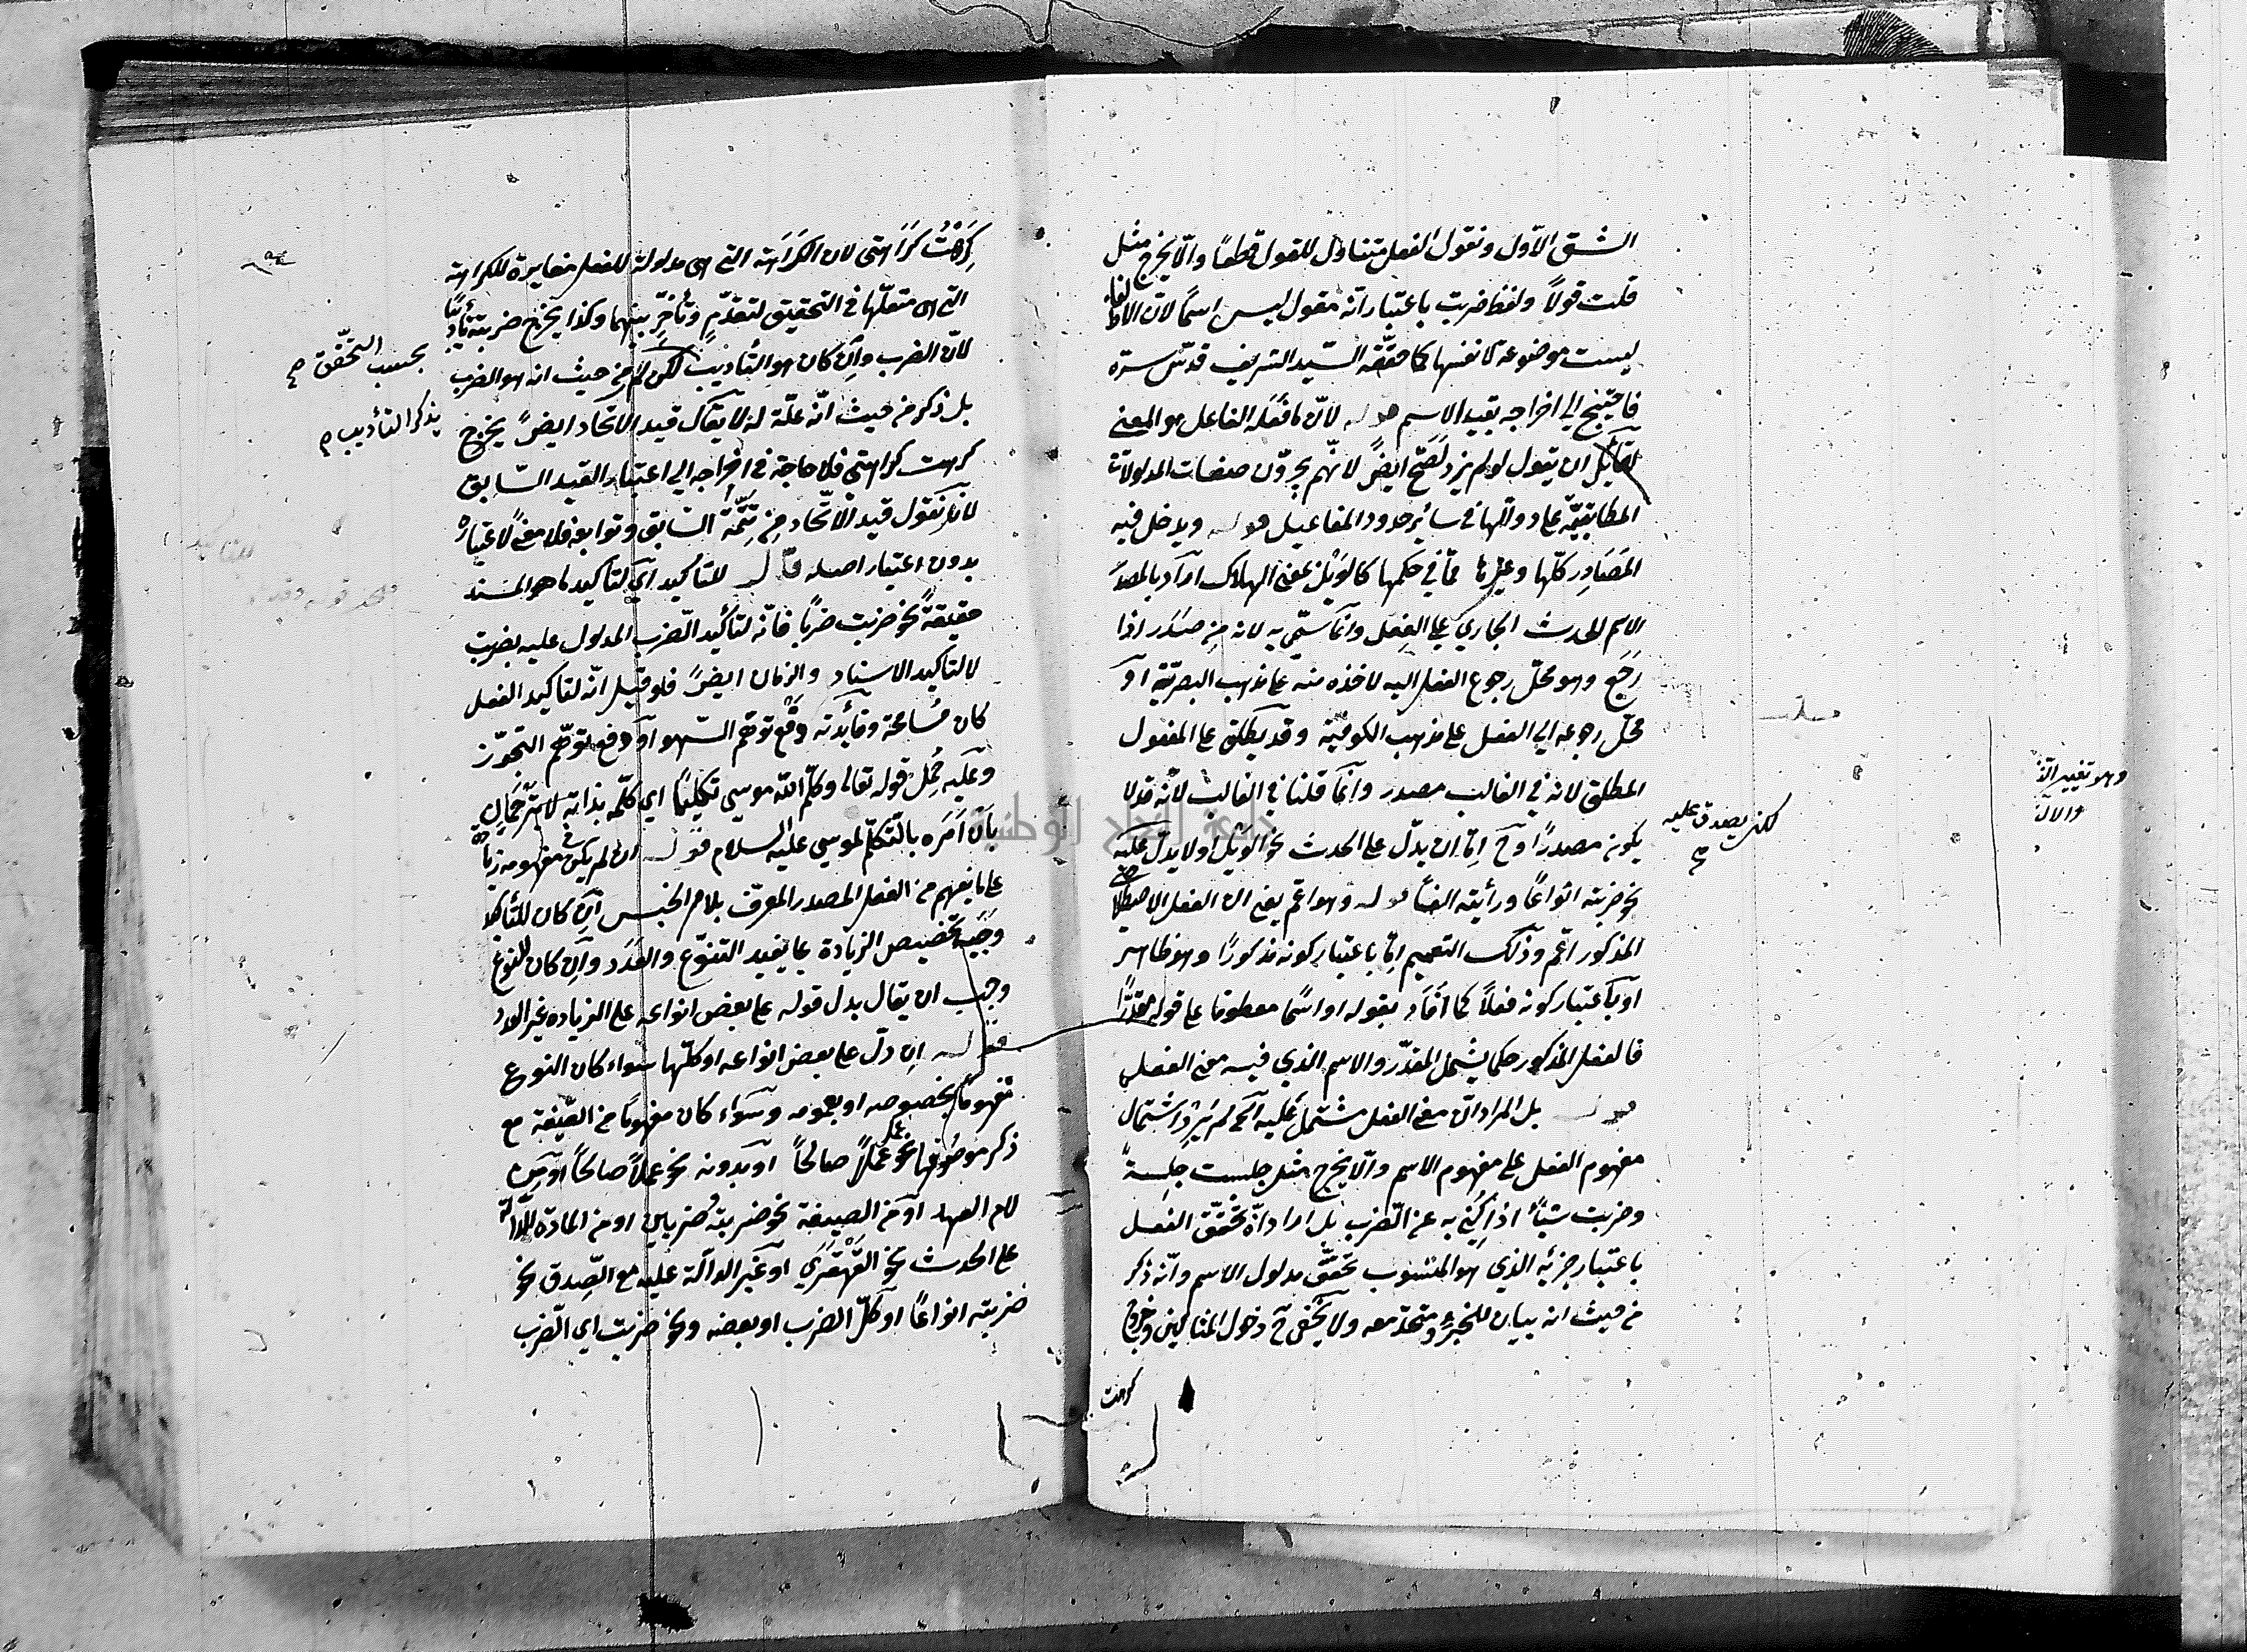 الشق الاول ونقول الفعل متناول للقول قطعًا والّا يخرج مثل
قلت قولاً ولفظ ضربت باعتبار انّه مقول ليس اسمًا لانّ الالفاظ
ليست موضوعة لانفسها كما حققه السّيد الشريف قدّس سرّه
فاحتيج الي اخراجه بقيد الاسم قوله لانّ ما فعَله الفاعل هو المعني
لقائل ان يقول لو لم يزد لَصَحّ ايضًا لانّهم يجرّون صفات المدلولات
المطابقيّة علي دوالّها في سائر حدود المفاعيل قوله ويدخل فيه
المَصَادِر كلّها وغيرها ممّا في حكمها كالوَيْل بمعني الهلاك اراد بالمصدر
الاسم للحدث الجاري علي الفِعل وانّما سمّي به لانه مِن صَدَر اذا
رَجَع وهو محلّ رجوع الفعل اليه لاخذه منه علي مذهب البصريّة اَو
محلّ رجوعه الي الفعل علي مذهب الكوفيّة وقد يطلق علي المفعول
المطلق لانه في الغالب مصدر وانّما قلنا في الغالب لانّه قد لا
يكون مصدرًا وَح اِمّا ان يدلّ علي الحدث نحو الوَيْل او لا يدلّ عَليه
نحو ضربته انواعًا ورأيته الفًا قوله وهو اعّم يعني ان الفعل الاصطلاحي
المذكور اعّم وذلك التعميم اِمّا باعتبار كونه مذكورًا وهو ظاهر
اَو باعتبار كونه فعلاً كما اَفَاد بقوله او اسمًا معطوفا علي قوله مقدّرًا
فالفعل المذكور حكما يشمل المقدّر والاسم الذي فيه معني الفعل
قوله بل المراد انّ معني الفعل مشتمل عَليه اَي لم يُرِدْ اشتمال
مفهوم الفعل علي مفهوم الاسم والّا يخرج مثل جلست جِلسةً
وضربت شيئاً اذا كُنِيَ به عن الضّرب بل اراد انّه تحقّق الفعل
باعتبار جزئه الذي هو المنسوب تحقّق مدلول الاسم وانّه ذكر
من حيث انه بيان للجزء ومتحد معه ولا يَخْفَي ح دخول المثالين وخروج
كرهت
لكن يصدق عليه
وهو تغيير
والالة
كَرِهْتُ كَرَاهتي لان الكَرَاهة التي هي مدلولة للفعل مغايرة للكراهة
التي هي متعلّقها في التحقيق لتقدّمٍ وتأخّرٍ بينهما وكذا يخرج ضربته تأديبًا
لانّ الضرب واِن كان هو التأديب لكن لا من حيث انه هو الضرب
بل ذكر من حيث انّه علّة له لا يقال قيد الاتحاد ايضًا يخرج
كرهت كراهتي فلا حاجة في اخراجه الي اعتبار القيد السّابق
لانّا نقول قيد الاتّحاد مِن تتِمّة السّابق وتوابعه فلا معني لاعتباره
بدون اعتبار اصله قال للتاكيد اَي لتاكيد ما هو المسَند
حقيقةً نحو ضربت ضربًا فانّه لتأكيد الضّرب المدلول عليه بضربت
لا لتأكيد الاسناد والزمان ايضًا فلو قيل انّه لتاكيد الفعل
كان مُسامحة وفائدته دَفْع توهّم السّهو اَو دفع توهّم التجوّز
وعَليه حُمِل قوله تعالي وكلّم اللّه موسي تكليمًا اي كلّمه بذاته لا بترجُمَانٍ
بأن اَمَره بالتكلّم لموسي عليه السلام قوله ان لم يكن في مفهومه زيادة
علي ما يفهم من الفعل المصدر المعرّف بلام الجنس اِن كان للتأكيد
وَجَب تخصيص الزيادة بما يفيد التنوّع والعَدَد واِن كان للنوع
وجب ان يقال بدل قوله علي بعض انواعه علي الزيادة غير العدد
قوله اِن دلّ علي بعض انواعه او كلّها سواء كان النوع
مفهومًا بخصوصه او بعمومه وسَواء كان مفهومًا من الصّفة مع
ذكر موصوفها نحو عَمِلَ عملاً صالحًا اَو بدونه نحو عمل صالحًا اَو مِن
لام العهد اَو مِن الصيغة نحو ضربته ضربتين او من المادة الدالّة
علي الحدث نحو القَهْقَرَي اَو غير الدالّة عليه مع الصِّدق نحو
ضربته انواعًا اَو كلّ الضرب او بعضه ونحو ضربت اي الضّرب
بحسب التحّقق صح
بذكر التأديب